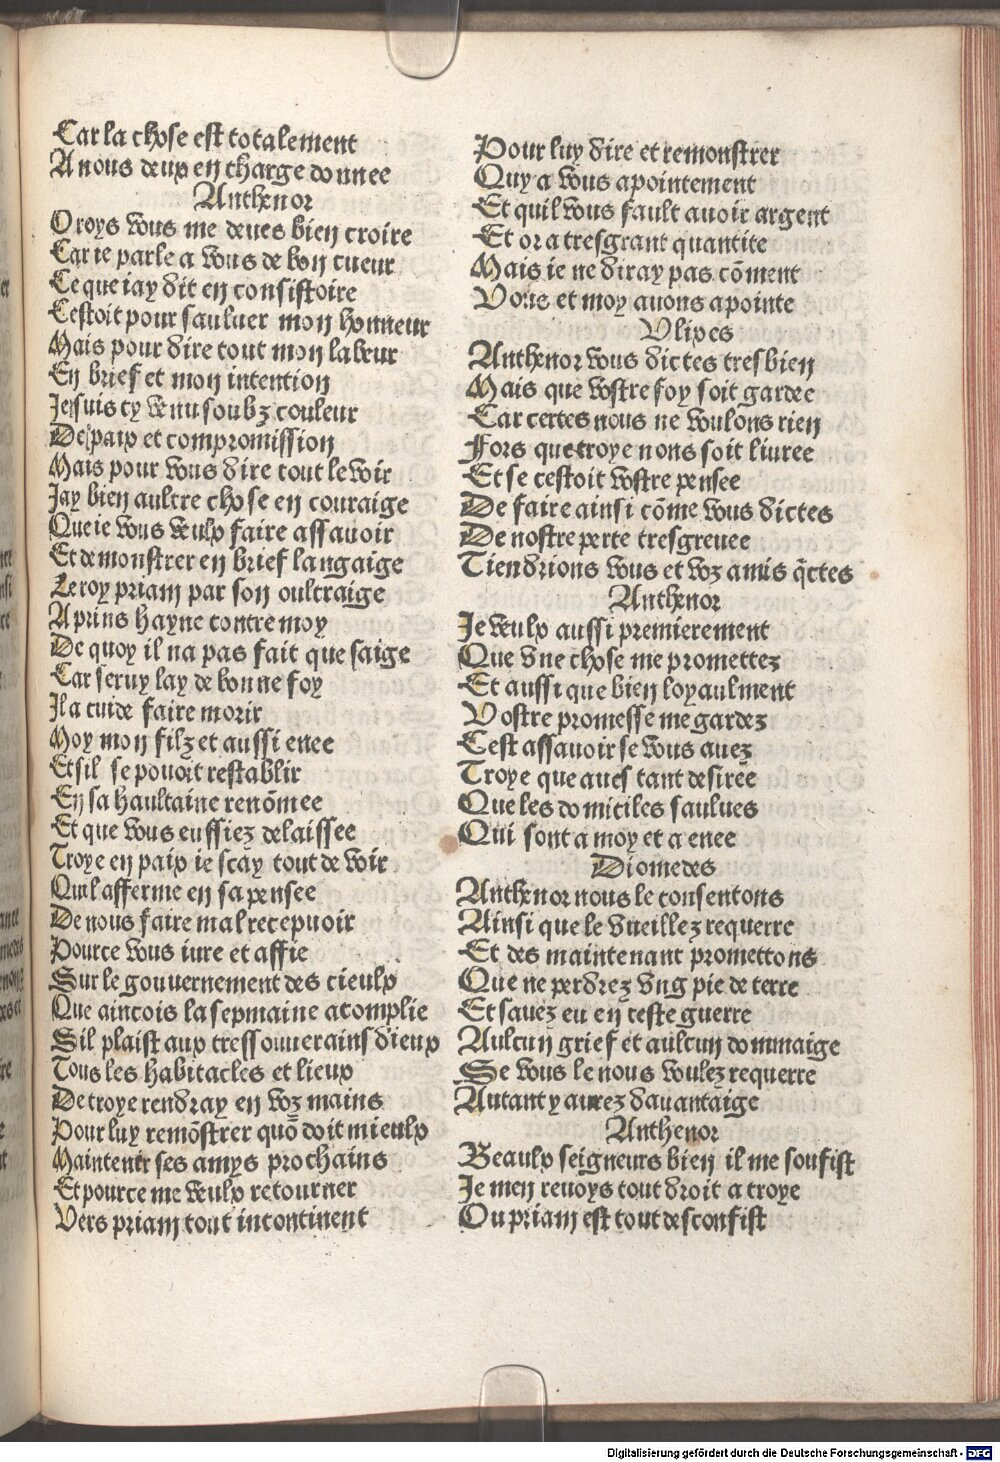 Car la chose est totalement
A nous deux en charge donnee
Anthenor
O roys vous me deues bien croire
Car ie parle a vous de bon cueur
Ce que iay dit en consistoire
Cestoit pour sauluer mon honneur
Mais pour dire tout mon labeur
En brief et mon intention
Je suis cy venu soubz couleur
De paix et compromission
Mais pour vous dire tout le voir
Jay bien aultre chose en couraige
Que ie vous veulx faire assauoir
Et demonstrer en brief langaige
Le roy priam par son oultraige
A prins hayne contre moy
De quoy il na pas fait que saige
Car seruy lay de bonne foy
Il a cuide faire morir
Moy mon filz et aussi enee
Et sil se pouoit restablir
En sa haultaine renōmee
Et que vous eussiez delaissee
Troye en paix ie scay tout de voir
Quil afferme en sa pensee
De nous faire mal recepuoir
Pource vous iure et affie
Sur le gouuernement des cieulx
Que aincois la sepmaine acomplie
Sil plaist aux tressouuerains dieux
Tous les habitacles et lieux
De troye rendray en voz mains
Pour luy remōstrer quō doit mieulx
Maintenir ses amys prochains
Et pource me veulx retourner
Vers priam tout incontinent
Pour luy dire et remonstrer
Quy a vous apointement
Et quil vous fault auoir argent
Et or a tresgrant quantite
Mais ie ne diray pas cōment
Vous et moy auons apointe
Vlixes
Anthenor vous dictes tres bien
Mais que vostre foy soit gardee
Car certes nous ne voulons rien
Fors que troye nons soit liuree
Et se cestoit vostre pensee
De faire ainsi cōme vous dictes
De nostre perte tresgreuee
Tiendrions vous et voz amis q̄ctes
Anthenor
Je veulx aussi premierement
Que vne chose me promettez
Et aussi que bien loyaulment
Vostre promesse me gardez
Cest assauoir se vous auez
Troye que aues tant desiree
Que les domiciles saulues
Qui sont a moy et a enee
Diomedes
Anthenor nous le consentons
Ainsi que le vueillez requerre
Et des maintenant promettons
Que ne perdrez vng pie de terre
Et sauez eu en ceste guerre
Aulcun grief et aulcun dommaige
Se vous le nous voulez requerre
Autant y aurez dauantaige
Anthenor
Beaulx seigneurs bien il me soufist
Je men reuoys tout droit a troye
Ou priam est tout desconfist
Digitalisierung gefördert durch die Deutsche Forschungsgemeinschaft - DFG